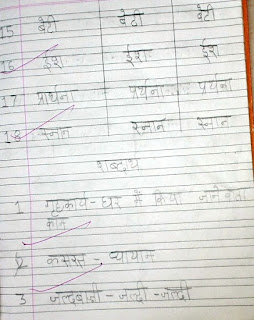 15 बेटी बेटी बेटी
16 ईश ईश ईश
17 प्रार्थना पर्थना पर्थना
18 स्नान स्नान स्नान
शब्दार्थ
1 गृहकार्य - घर में किया जाने वाला
काम
2 कसरत - व्यायाम
3 जल्दबाजी - जल्दी - जल्दी